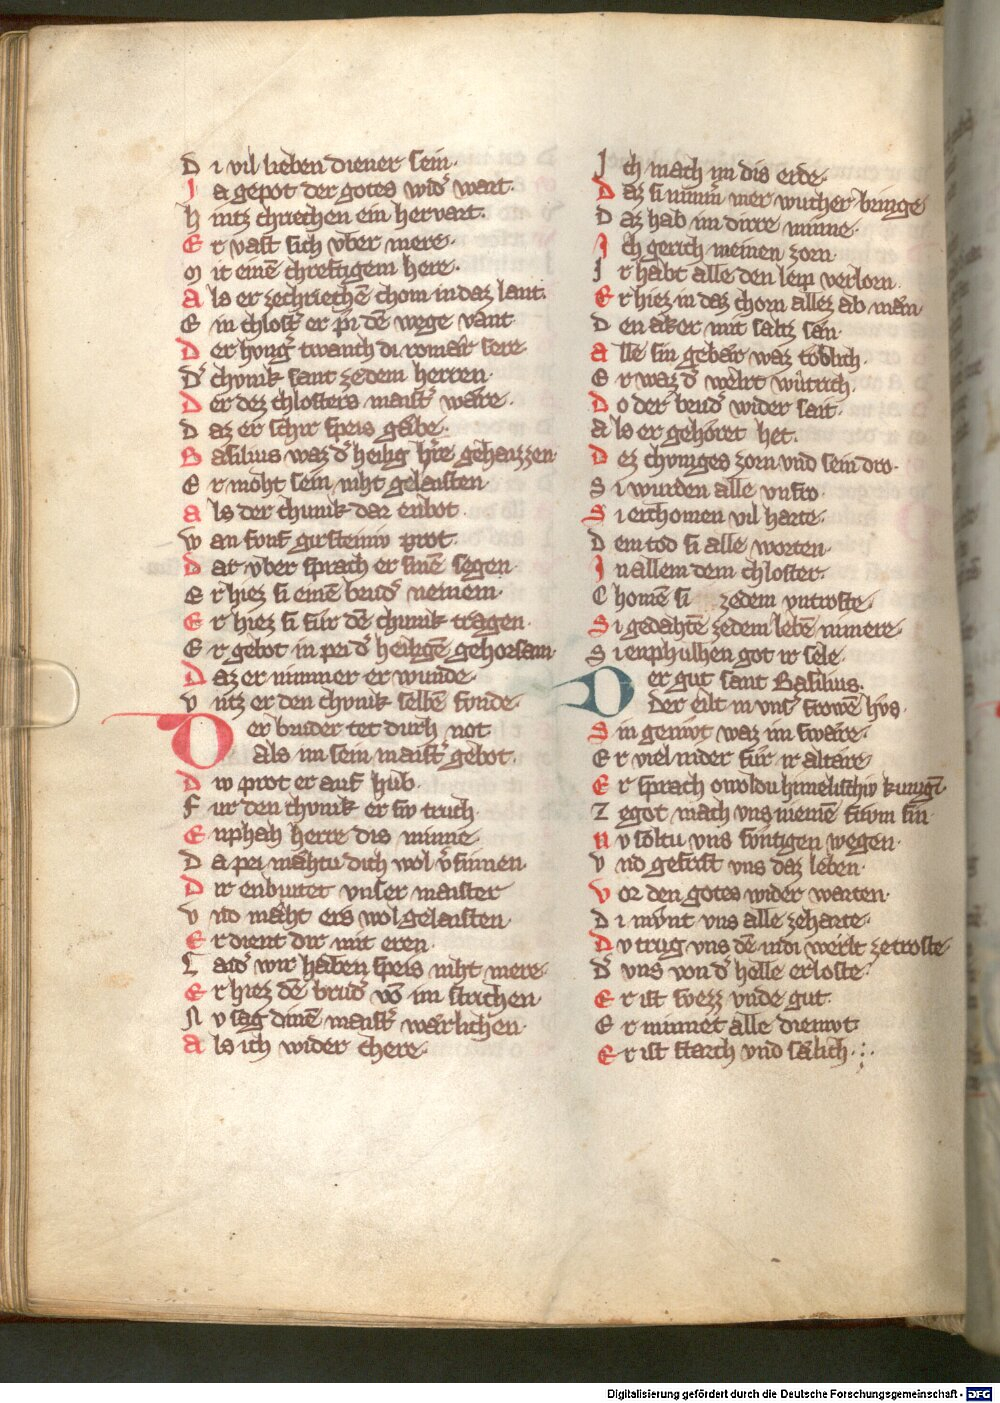 Di vil lieben diener sein·
Ia gepot der gotes wid͛ wart·
hintz chriechen ein hervart·
Er vast sich vber mere·
Mit einē chreftigem here·
Als er zechriechē chom in daz lant·
Ein chlost͛ er pi dē wege vant
Der hvng͛ twanch di romær sere·
D͛ chvnik sant zedem herren·
Der dez chlosters maist͛ wære·
Daz er schir speis gæbe·
Basilius waz d͛ heilig h͛re gehaizzen·
Er moht sein niht gelaisten
Als der chunik dar enbot
wan fvnf girsteiniv prot·
Dar vber sprach er sinē segen·
Er hiez si einē brud͛ nemem·
Er hiez si fur dē chunik tragen·
Er gebot in pei d͛ heiligē gehorsam·
Daz er nimmer erwunde·
vntz er den chvnik selbē fvnde·
Der bruder tet durh not
als im sein maist͛ gebot·
Div prot er auf hub·
Fur den chvnik er siv truch·
Enphah herre dis minne·
Da pei mahtu dich wol v͛sinnen·
Dir enbiutet vnser maister
vnd mæht ers wol gelaisten·
Er dient dir mit eren·
Laid͛ wir haben speis niht mere·
Er hiez dē brud͛ vō im strichen·
Nv sag dinē maist͛ wærlichen·
Als ich wider chere·
Ich mach im dis erde·
Daz si nimm͛ mer wucher bringe
Daz hab im dirre minne·
Ich gerich meinen zorn·
Ir habt alle den leip verlorn·
Er hiez in daz chorn allez ab mæn·
Den aker mit saltz sæn·
Alle sin gebær waz töblich·
Er waz d͛ welrt wůtrich·
Do der brud͛ wider sait·
Als er gehöret het·
Dez chvniges zorn vnd sein dro·
Si wurden alle vnfro·
Si erchomen vil harte·
Dem tod si alle worten·
In allem dem chloster·
Chomē si zedem vntroste·
Si gedahtē zedem lebē nimere·
Si enphulhen got ir sele·
Der gut sant Basilius·
Der eilt in vns͛ frowē hvs·
Sin gemvt waz im swære·
Er viel nider fur ir altære·
Er sprach owol du himelischiv kunigī·
Zegot mach vns niemē frvm sin·
Nv söltu vns svntigen wegen·
vnd gefrist vns daz leben·
Vor den gotes wider warten·
Di mvnt vns alle zeharte·
Dv trug vns dē in di werlt zetroste·
D͛ vns von d͛ helle erloste·
Er ist svezz vnde gut·
Er minnet alle diemvt·
Er ist starch vnd sælich·
Digitalisierung gefördert durch die Deutsche Forschungsgemeinschaft - DFG